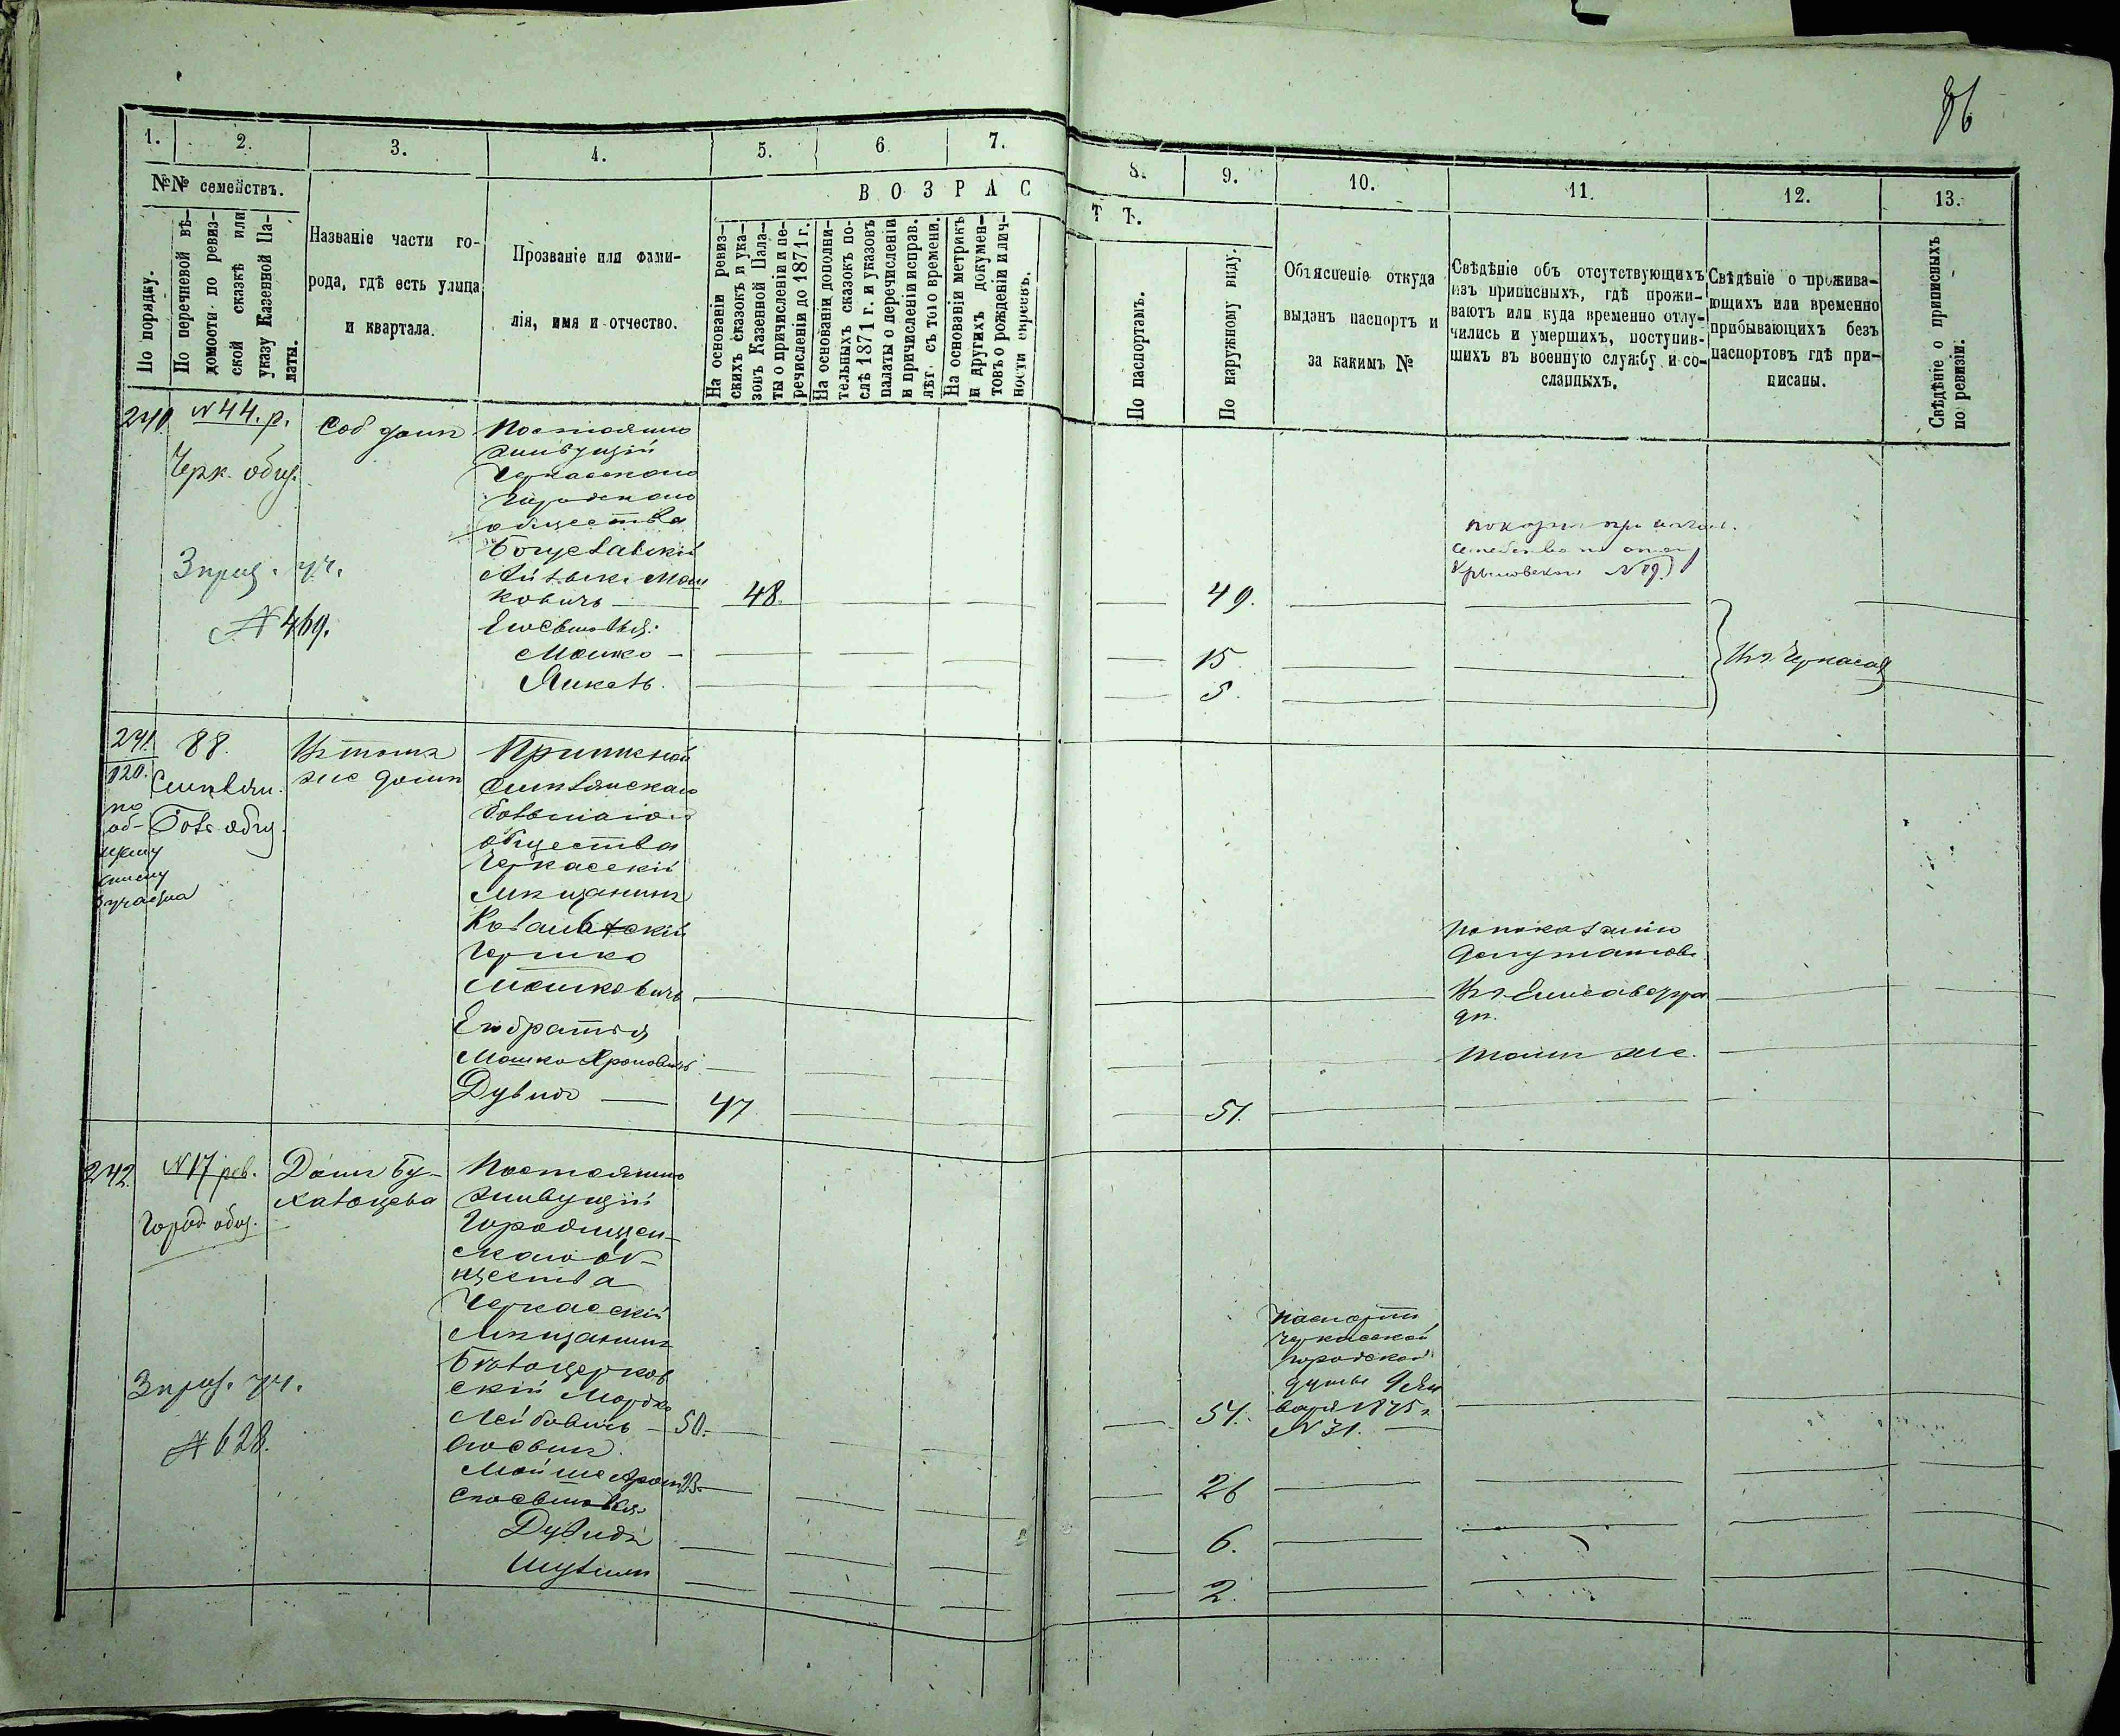 86
1. 2. 3. 4. 5. 6 7. 8. 9. 10. 11. 12. 13.
№№ семействъ.
В О З Р А С Т Ъ.
По порядку.
По перечневой вѣ-
домости по ревиз-
ской сказкѣ или
указу Казенной Па-
латы.
Названіе части го-
рода, гдѣ есть улица
и квартала.
Прозваніе или фами-
лія, имя и отчество.
На основаніи ревиз-
скихъ сказокъ и ука-
зовъ Казенной Пала-
ты о причисленіи и пе-
речисленіи до 1871 г.
На основаніи дополни-
тельныхъ сказокъ по-
слѣ 1871 г. и указовъ
палаты о перечисленіи
и причисленіи исправ.
лѣт. съ того времени.
На основаніи метрикъ
и другихъ докумен-
товъ о рожденіи и лич-
ности евреевъ.
По паспортамъ.
По наружному виду.
Объясненіе откуда
выданъ паспортъ и
за какимъ №
Свѣдѣніе объ отсутствующихъ
изъ приписныхъ, гдѣ прожи-
ваютъ или куда временно отлу-
чились и умершихъ, поступив-
шихъ въ военную службу и со-
сланныхъ.
Свѣдѣніе о прожива-
ющихъ или временно
прибывающихъ безъ
паспортовъ гдѣ при-
писаны.
Свѣдѣніе о приписныхъ
по ревизіи.
240
N 44. р.
Черк. общ.
3 приз. уч.
№ 469.
Соб домъ
Постоянно
живущій
Черкасскаго
Городскаго
общества
Богуславскій
Мош
ковичъ 48. 49.
Его сыновья:
Мошко 15
Янкель. 5.
N 19
Изъ Черкасъ
241.
120.
по
об-
щему
списку
участка
88.
Смилян.
общ.
Въ томъ
же домѣ
Приписной
Смилянскаго
общества
Черкасскій
мѣщанинъ
Гершко
Мошковичъ
Его братья
Мошко Ароновичъ
Дувидъ 47 51.
По показанію
депутатовъ
Въ Елисаветгра
дѣ.
тамъ же.
242.
N 17 рев.
Город. общ.
3 приз. уч.
№ 628.
Домъ Бу-
Постоянно
живущій
Городищен-
скаго об-
щества
Черкасскій
мѣщанинъ
Бѣлоцерков
скій Мордко
Лейбовичъ 50. 51.
его сынъ.
Мойше Арон 23. 26
его сыновья
Дувидъ 6.
Шулимъ 2.
Паспортъ
Черкасской
городской
думы 9 Ян
варя 1875 г.
N 31.